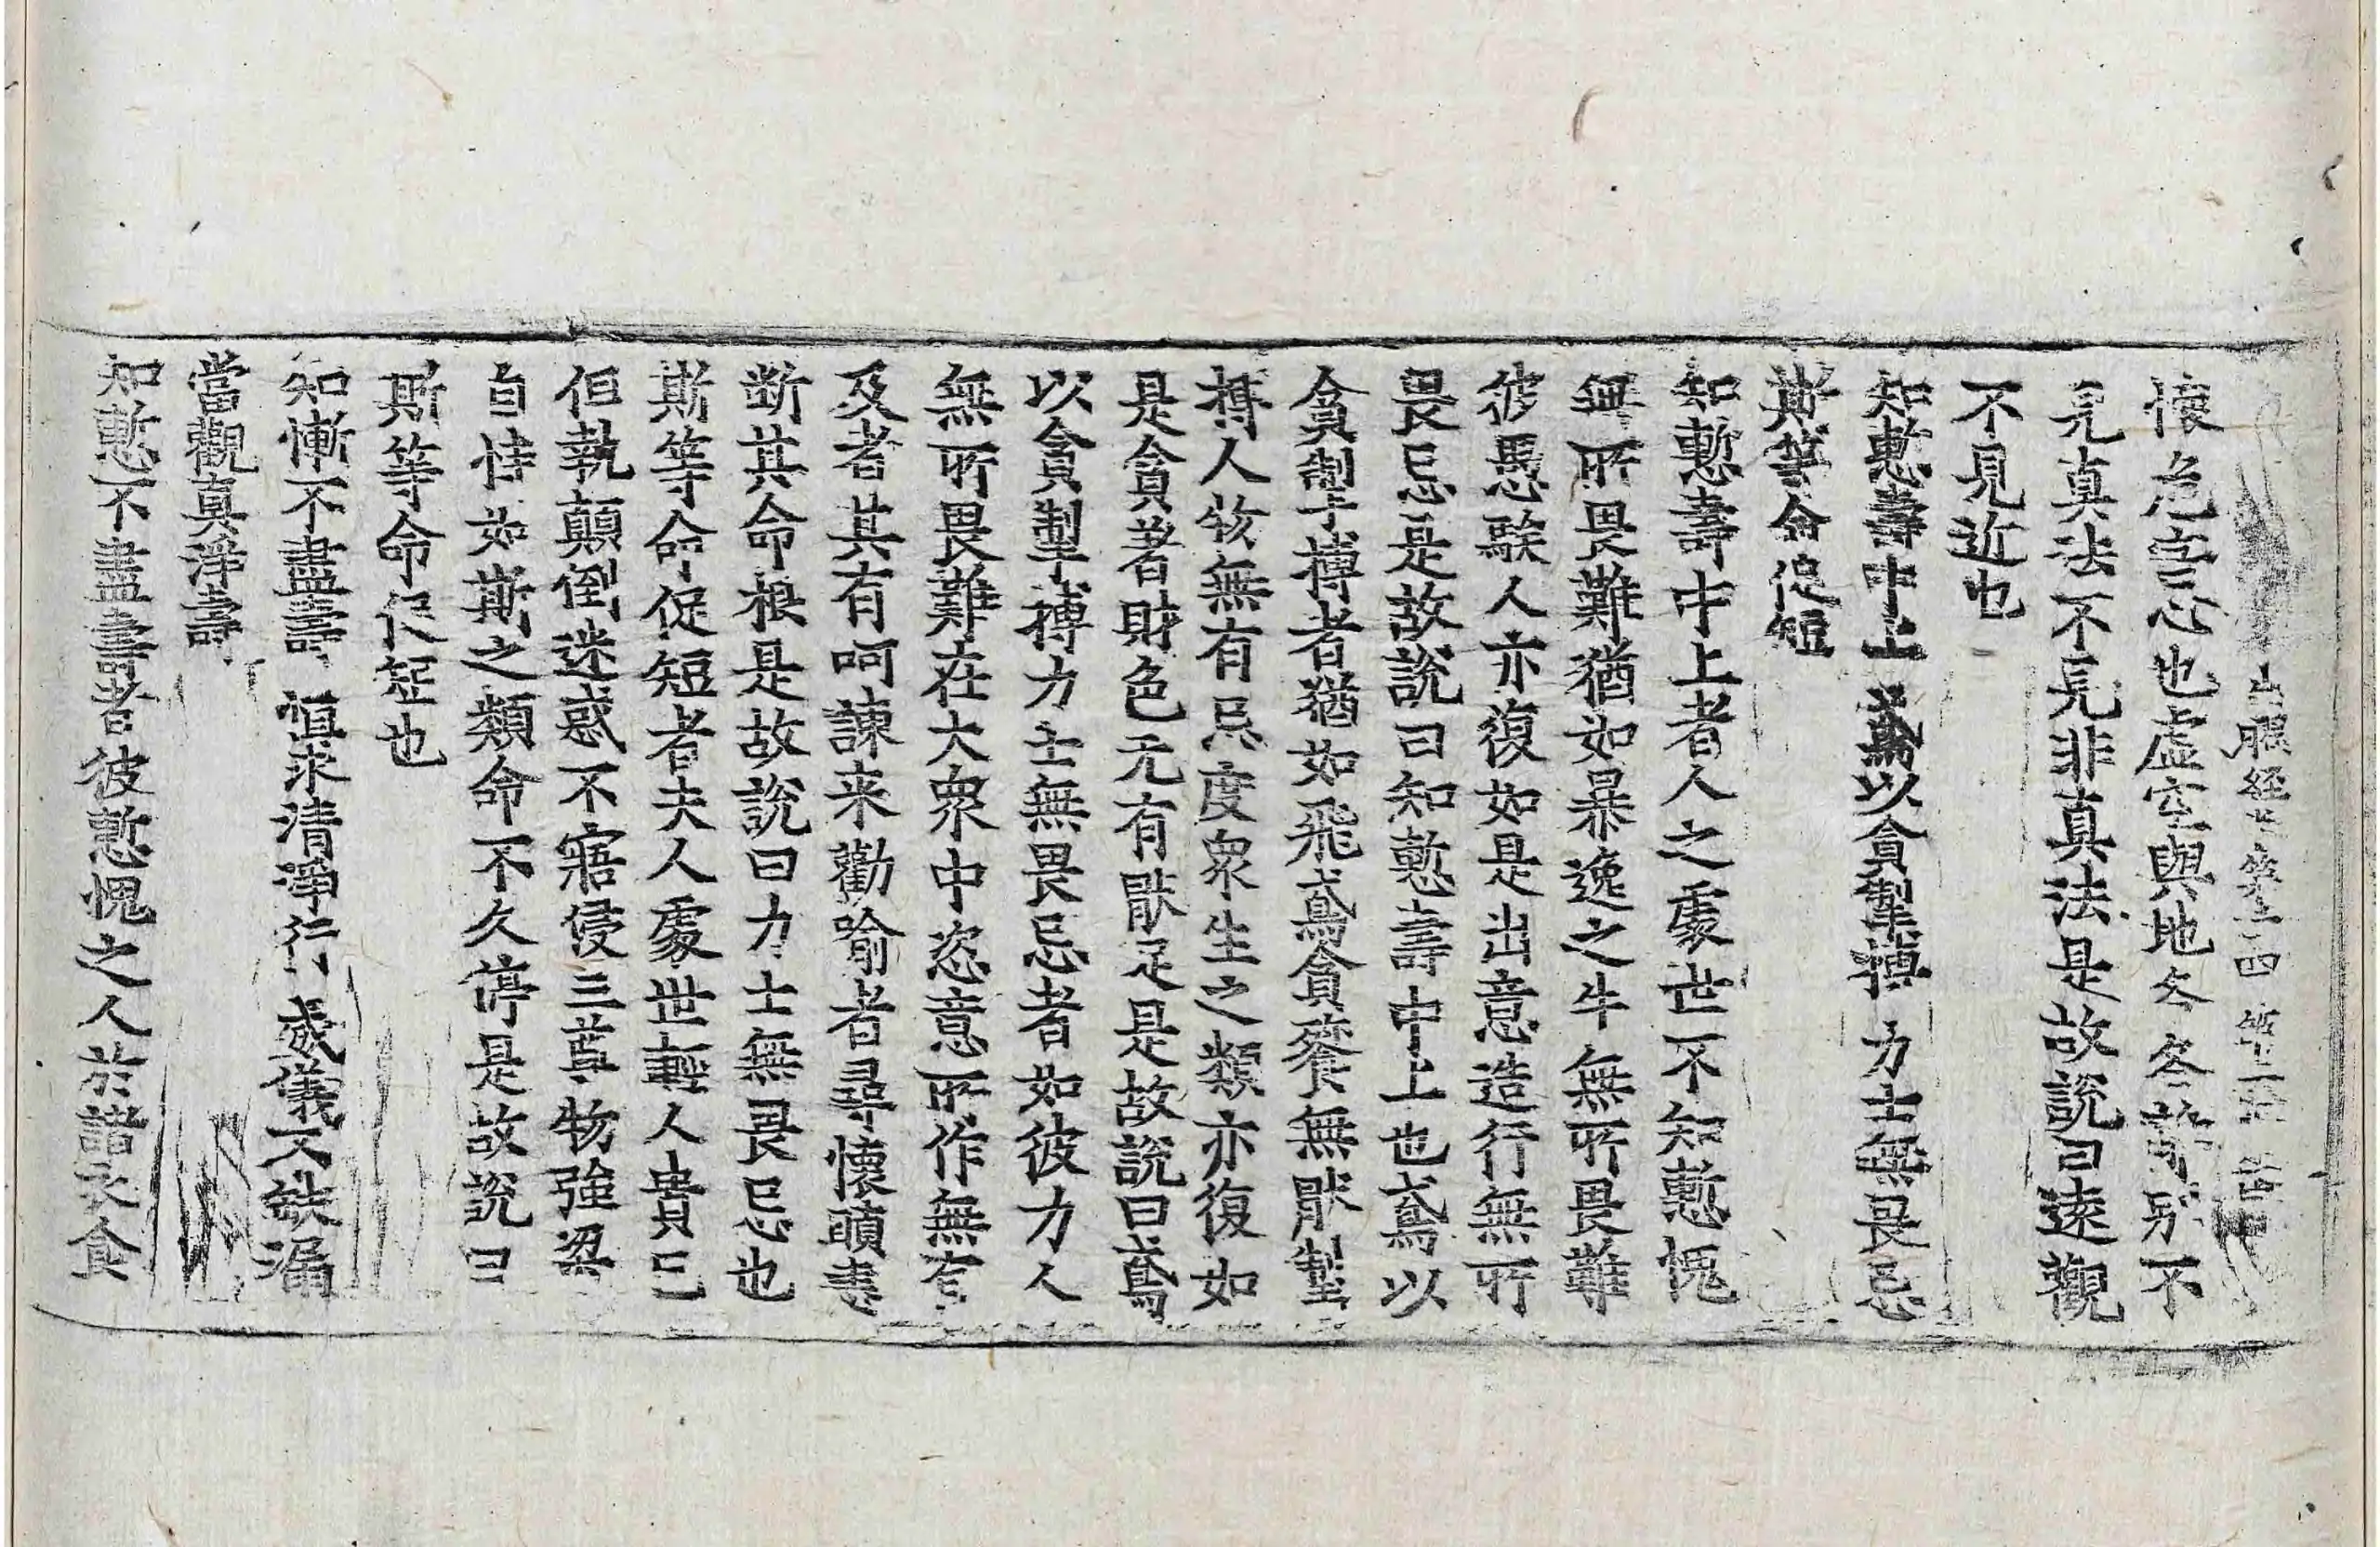 出曜經 第二四
懷危害心也虛空與地各各離別不
見真法不見非真法是故說曰遠觀
不見近也
知慙壽中上 鳶以貪掣搏 力士無畏忌
斯等命促短
知慙壽中上者人之處世不知慙愧
無所畏難猶如暴逸之牛無所畏難
彼愚騃人亦復如是出意造行無所
畏忌是故說曰知慙壽中上也鳶以
貪掣搏者猶如飛鳶貪餮無猒掣
搏人物無有忌度眾生之類亦復如
是貪著財色无有猒足是故說曰鳶
以貪掣搏力士無畏忌者如彼力人
無所畏難在大眾中恣意所作無有
及者其有呵諫来勸喻者尋懷瞋恚
断其命根是故說曰力士無畏忌也
斯等命促短者夫人處世輕人貴己
但執顛倒迷惑不寤侵三尊物強梁
自恃如斯之類命不久停是故說曰
斯等命促短也
知慚不盡壽 恒求清淨行 威儀不缺漏
當觀真淨壽
知慙不盡壽者彼慙愧之人於諸衣食